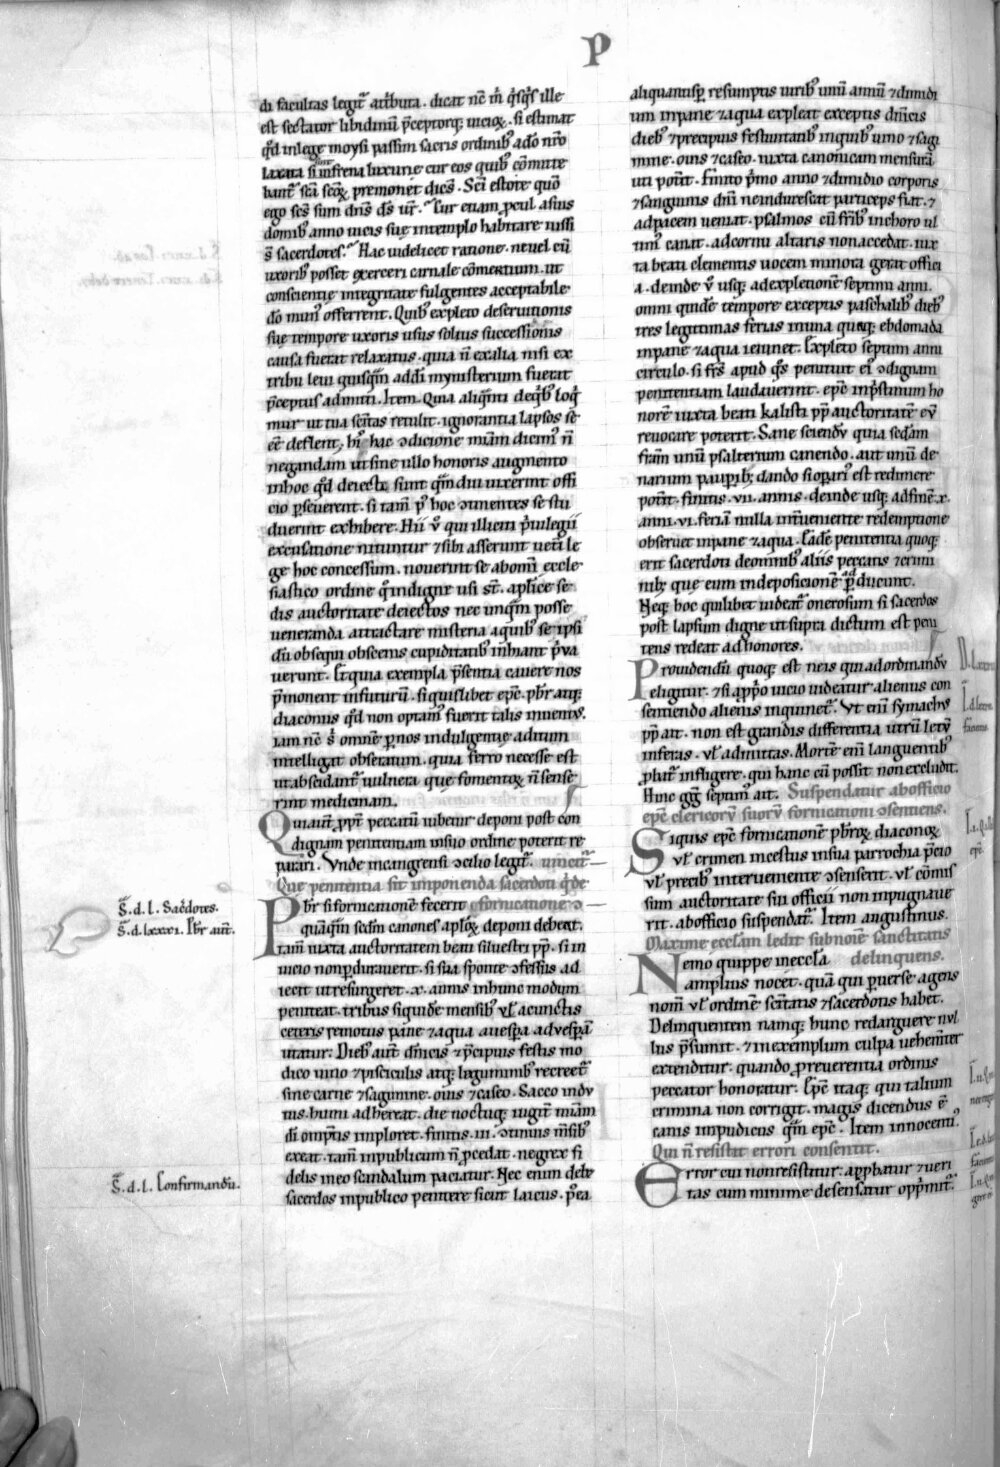 P
di facultas legit͛ attributa . dicat nc̄ m̄ qͥsqͥs ille
est sectator libidinū p̄ceptorq; uicioꝝ . si estimat
qd̄ inlege moysi passim sacris ordinibꝰ adō nr̄o
laxata sint frena luxurie cur eos quibꝰ cōmitte
bant᷑ sc̄a sc̄oꝝ premonet dicēs . Sc̄i estote quō
ego sc̄s sum dn̄s ds̄ ur̄ . Cur etiam ꝓcul asuis
domibꝰ anno uicis suę intemplo habitare iussi
s̄ sacerdotes . Hac uidelicet ratione . ne uel cū
uxoribꝰ posset exerceri carnale cōmertium . ut
conscientię integritate fulgentes acceptabile
dō munꝰ offerrent . Quibꝰ expleto deseruitionis
suę tempore uxoris usus solius successionis
causa fuerat relaxatus . quia n̄ exalia nisi ex
tribu leui quisqͣm addi̅ mynisterium fuerat
p̄ceptus admitti . Item . Quia aliqͣnti deqͥbꝰ loqͥ
mur ut tua sc̄itas retulit . ignorantia lapsos se
eē deflent , hiͥ hac ꝯdicione mīam dicimꝰ n̄
negandam ut sine ullo honoris augmento
inhoc qd̄ detecti sunt qͣm diu uixerint offi
cio ꝑseuerent . si tam̄ pꝰ hoc ꝯtinentes se stu
duerint exhibere . Hii v̊ qui illiciti p̄uilegii
excusatione nituntur ⁊sibi asserunt ueti̅ le
ge hoc concessum . nouerint se abomi̅ eccle
siastico ordine qͦ indigne usi st̄ . aplicę se
dis auctoritate deiectos nec unqͣm posse
ueneranda attractare misteria aquibꝰ se ipsi
dū obsequi obscenis cupiditatibꝰ inhiant p̄ua
uerunt . Et quia exempla p̄sentia cauere nos
p̄monent infuturū . si quislibet epc̄ . pbr̄ atq;
diaconus qd̄ non optamꝰ fuerit talis inuentꝰ .
iam nc̄ s̄ omnē ꝑnos indulgentię aditum
intelligat obseratum . quia ferro necesse est
ut abscidant᷑ uulnera quę fomentoꝝ n̄ sense
rint medicinam .
Qui aut̄ ꝓpt̄ peccatū iubetur deponi post con
dignam penitentiam insuo ordine poterit re
parari . Unde incangrensi ꝯcilio legit᷑ .
Que penitentia sit imponenda sacerdoti qͥ de
Pbr̄ si fornicationē fecerit fornicatione ꝯ—
quāqͣm scd̄m canones aplōꝝ deponi debeat .
tam̄ iuxta auctoritatem beati siluestri pp̄ . si in
uicio non ꝑdurauerit . si sua sponte ꝯfessus ad
iecit ut resurgeret . x . annis inhunc modum
peniteat . tribus siquidē mensibꝰ ul̄ acunctis
ceteris remotus pane ⁊ aqua auesꝑa aduesꝑā
utatur . Diebꝰ aut̄ dn̄icis ⁊ p̄cipuis festis mo
dico uino ⁊ pisciculis atq; leguminibꝰ recreet᷑
sine carne ⁊ sagimine . ouis ⁊ caseo . Sacco indu
tus . humi adhereat . die noctuq; iugit̄ mīam
di̅ omp̄tis imploret . finitis . iii . ꝯtinuis m̄sibꝰ
exeat . tam̄ inpublicum n̄ ꝓcedat . ne grex fi
delis ineo scandalum paciatur . Nec enim debe
sacerdos inpublico penitere sicut laicus . p̊ea
aliquantisꝑ resumptis uiribꝰ unū annū ⁊ dimidi
um inpane ⁊ aqua expleat exceptis dn̄icis
diebꝰ ⁊ precipuis festiuitatibꝰ inquibꝰ uino ⁊ sagi
mine . ouis ⁊ caseo . iuxta canonicam mensurā
uti potͥt . Finito p̄mo anno ⁊ dimidio corporis
⁊ sanguinis dn̄i ne indurescat particeps fiat . ⁊
adpacem ueniat . psalmos cū fr̄ibꝰ inchoro ul
timꝰ canat . ad cornu altaris non accedat . iux
ta beati clementis uocem minora gerat offici
a . deinde v̊ usq; adexpletionē septimi anni .
omni quidē tempore exceptis paschalibꝰ diebꝰ
tres legitimas ferias inuna quaq; ebdomada
inpane ⁊ aqua ieiunet . Expleto septimi anni
circulo . si fr̄s apud qͦs penituit eiꝰ ꝯdignam
penitentiam laudauerint . epc̄ inp̄stinum ho
norē iuxta beati kalisti pp̄ auctoritatē eū
reuocare poterit . Sane sciendū quia sc̄dam
friam unū psalterium canendo . aut unū de
narium pauꝑib; dando si oparꝰ est redimere
potͥt . finitis . vii . annis . deinde usq; adfinē . x .
anni . vi . feriam nulla int̄ueniente redemptione
obseruet inpane ⁊ aqua . Eadē penitentia quoq;
erit sacerdoti deomnibꝰ aliis peccatis ⁊ crimi
nib; quę eum indeposicionē ꝑducunt .
Neq; hoc quilibet uideat᷑ onerosum si sacerdos
post lapsum digne ut supra dictum est peni
tens redeat ad honores .
Prouidendū quoq; est neis qui adordinandū
eligitur . ⁊ si apͥpo uicio uideatur alienus con
sentiendo alienis inquinet᷑ . Ut enī symachꝰ
pp̄ ait . non est grandis differentia utrū letū
inferas . ul̄ admittas . Mortē enī languentibꝰ
ꝓbat᷑ infligere . qui hanc cū possit non excludit .
Hinc gg̅ septimꝰ ait . Suspendatur abofficio
epc̄ clericoꝝ suoꝝ fornicationi ꝯsentiens .
Siquis epc̄ fornicationē pbr̄oꝝ diaconoꝝ
ul̄ crimen incestus insua parrochia p̄cio
ul̄ precibꝰ interueniente ꝯsenserit . ul̄ cōmis
sum auctoritate sui officii non inpugnaue
rit . abofficio suspendat᷑ . Item augustinus .
Maxime eccl̄am ledit subnoīe sanctitatis
Nemo quippe ineccl̄a delinquens .
amplius nocet . quā qui ꝑuerse agens
nom̄ ul̄ ordinē sc̄itatis ⁊ sacerdotis habet .
Delinquentem namq; hunc redarguere nul
lus p̄sumit . ⁊ inexemplum culpa uehem̄ter
extenditur . quando ꝓreuerentia ordinis
peccator honoratur . Epc̄ itaq; qui talium
crimina non corrigit . magis dicendus ē
canis inpudicus qͣm epc̄ . Item innocentiꝰ .
Qui n̄ resistit errori consentit .
Error cui non resistitur . appbatur ⁊ ueri
tas cum minime defensatur opp̄mit᷑ .
S̄ . d . l . Sac̄dotes .
S̄ . d . lxxxi . Pbr̄ aut̄ .
S̄ . d . l . Confirmandū .